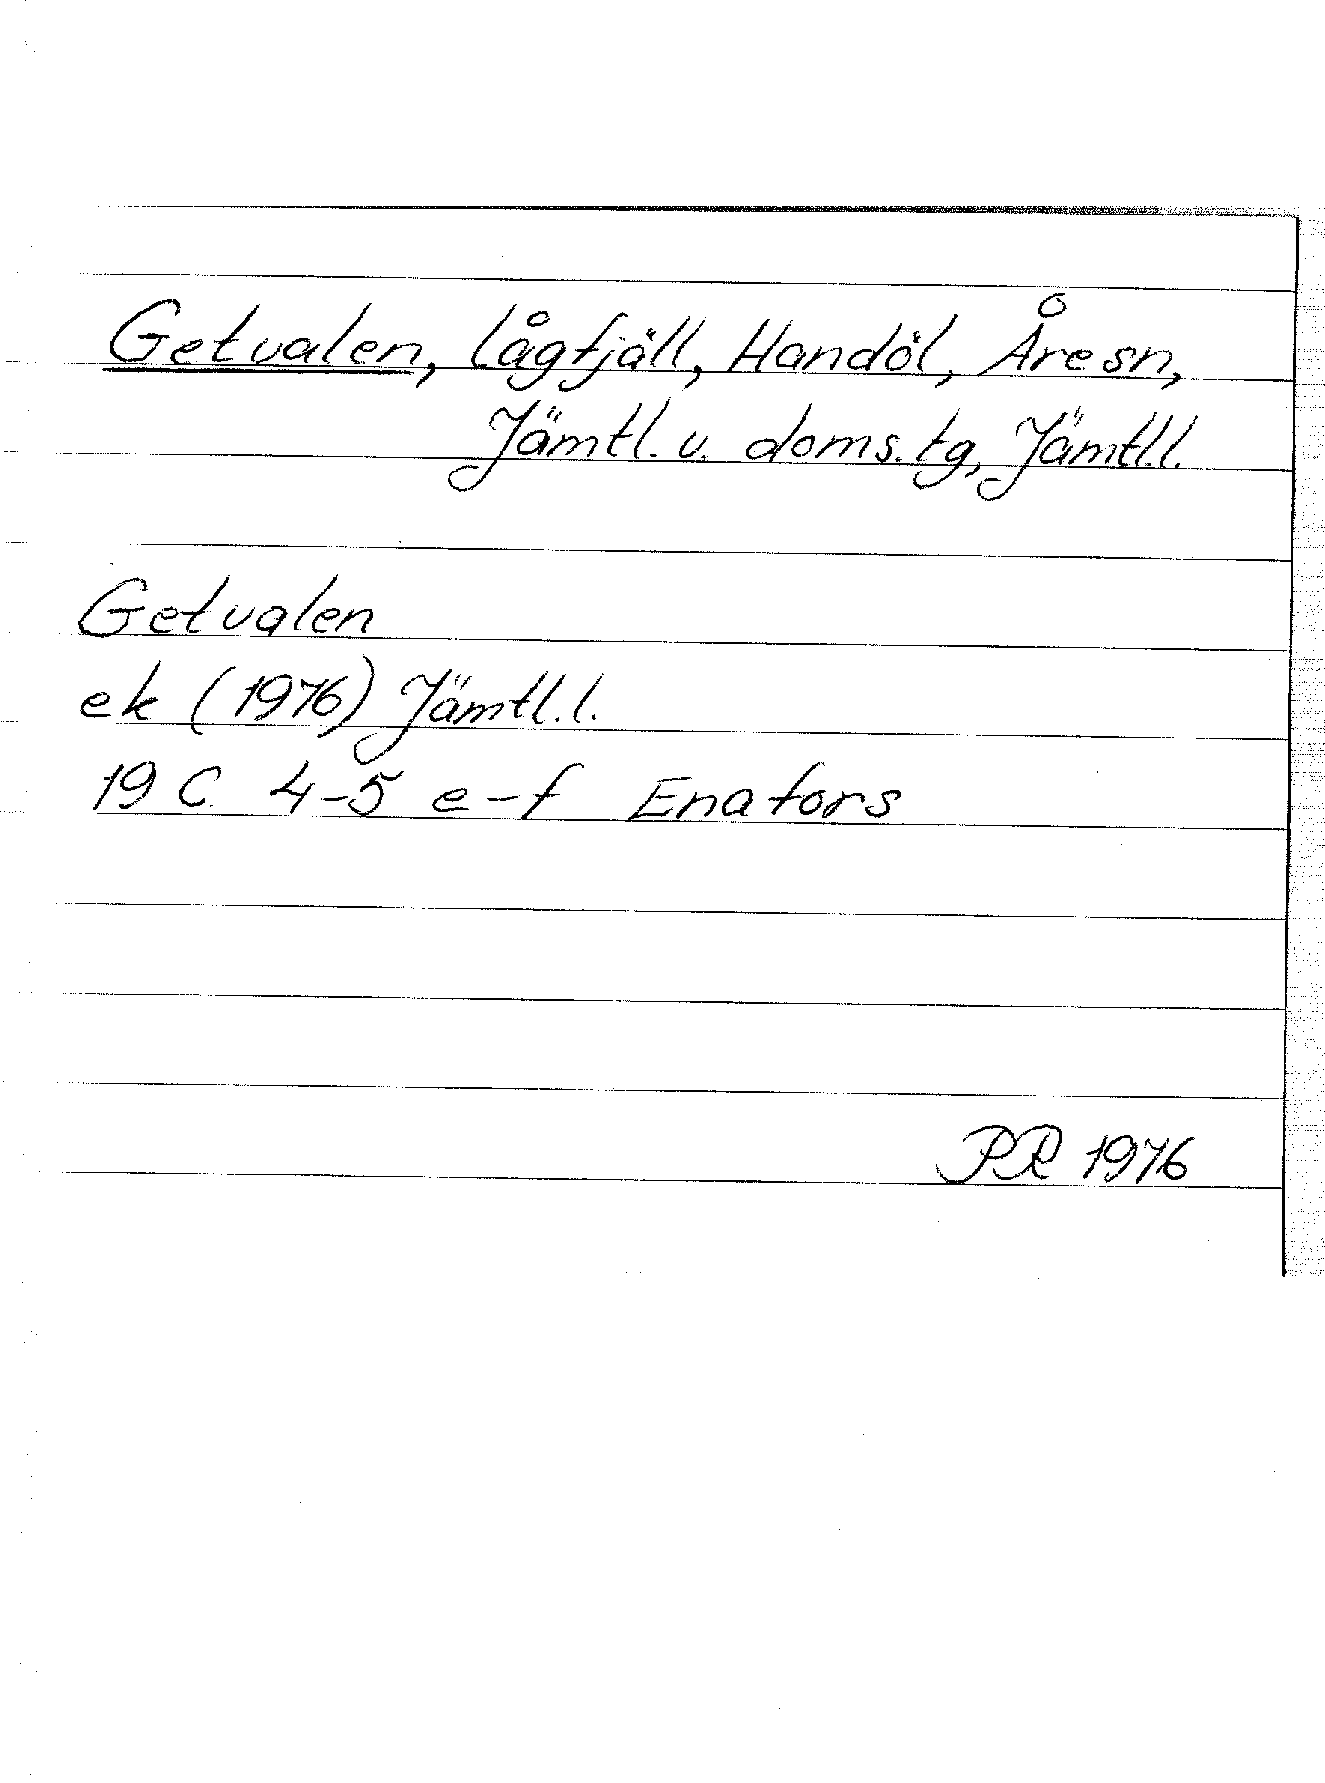 Getvalen, lågfjäll, Handöl, Åre sn,
Jämtl. v. doms. tg, Jämtl.l.
Getvalen
ek (1976) Jämtl.l.
19 C 4-5 e-f Enafors
PR 1976